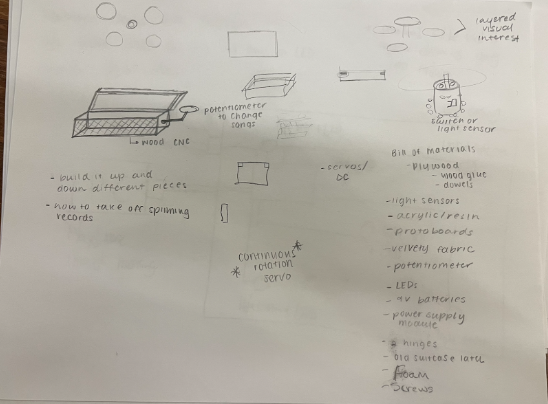 layered
visual
interest
potentiometer
to change
songs
wood CNC
switch or
light sensor
- build it up and
down different pieces
- how to take off spinning
records
- servos/
DC
continuous
rotation
servo
Bill of Materials
- plywood
- wood glue
- dowels
- light sensors
- acrylic/resin
- protoboards
- velvety fabric
- potentiometer
- LEDs
- 9V batteries
- power supply
module
- hinges
- old suitcase latch
- Foam
- Screws